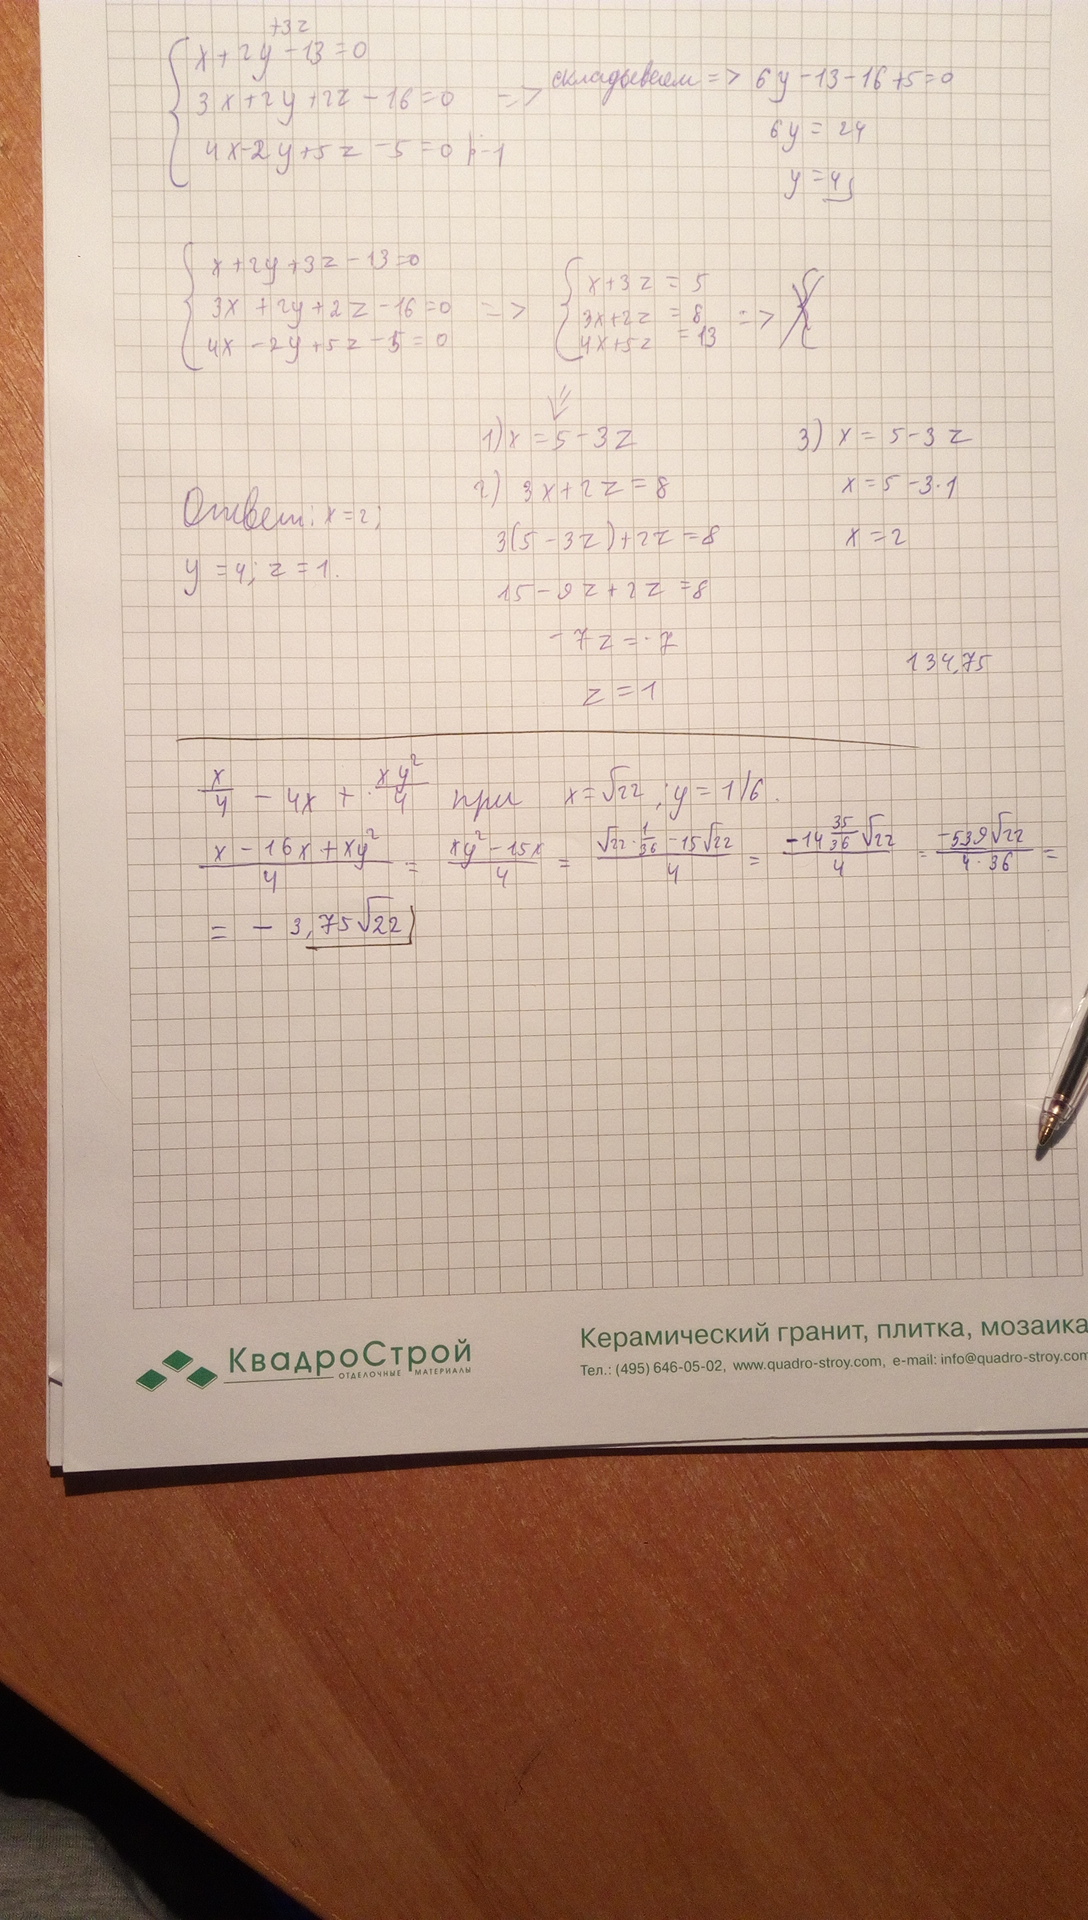 +3z
x + 2y - 13 = 0
3x + 2y + 2z - 16 = 0 => складываем => 6y - 13 - 16 + 5 = 0
4x - 2y + 5z - 5 = 0 |·-1
6y = 24
y = 4
x + 2y + 3z - 13 = 0
3x + 2y + 2z - 16 = 0 =>
4x - 2y + 5z - 5 = 0
x + 3z = 5
3x + 2z = 8 =>
4x + 5z = 13
1) x = 5 - 3z
2) 3x + 2z = 8
3(5 - 3z) + 2z = 8
15 - 9z + 2z = 8
-7z = -7
z = 1
3) x = 5 - 3z
x = 5 - 3·1
x = 2
Ответ: x = 2;
y = 4; z = 1.
134,75
x/4 - 4x + xy²/4 при x = √22; y = 1/6.
(x - 16x + xy²)/4 = (xy² - 15x)/4 = (√22 · 1/36 - 15√22)/4 = (-14 35/36 √22)/4 = (-539√22)/(4·36) =
= - 3,75√22
КвадроСтрой
ОТДЕЛОЧНЫЕ МАТЕРИАЛЫ
Керамический гранит, плитка, мозаика
Тел.: (495) 646-05-02, www.quadro-stroy.com, e-mail: info@quadro-stroy.com